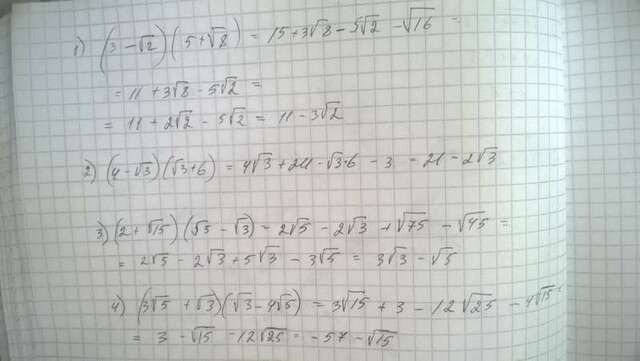 1) (3 - √2)(5 + √8) = 15 + 3√8 - 5√2 - √16 =
= 11 + 3√8 - 5√2 =
= 11 + 2√2 - 5√2 = 11 - 3√2
2) (4 - √3)(√3 + 6) = 4√3 + 24 - √3·6 - 3 - 21 - 2√3
3) (2 + √15)(√5 - √3) - 2√5 - 2√3 + √75 - √45 =
= 2√5 - 2√3 + 5√3 - 3√5 = 3√3 - √5
4) (3√5 + √3)(√3 - 4√5) = 3√15 + 3 - 12√25 - 4√15 =
= 3 - √15 - 12√25 = -57 - √15